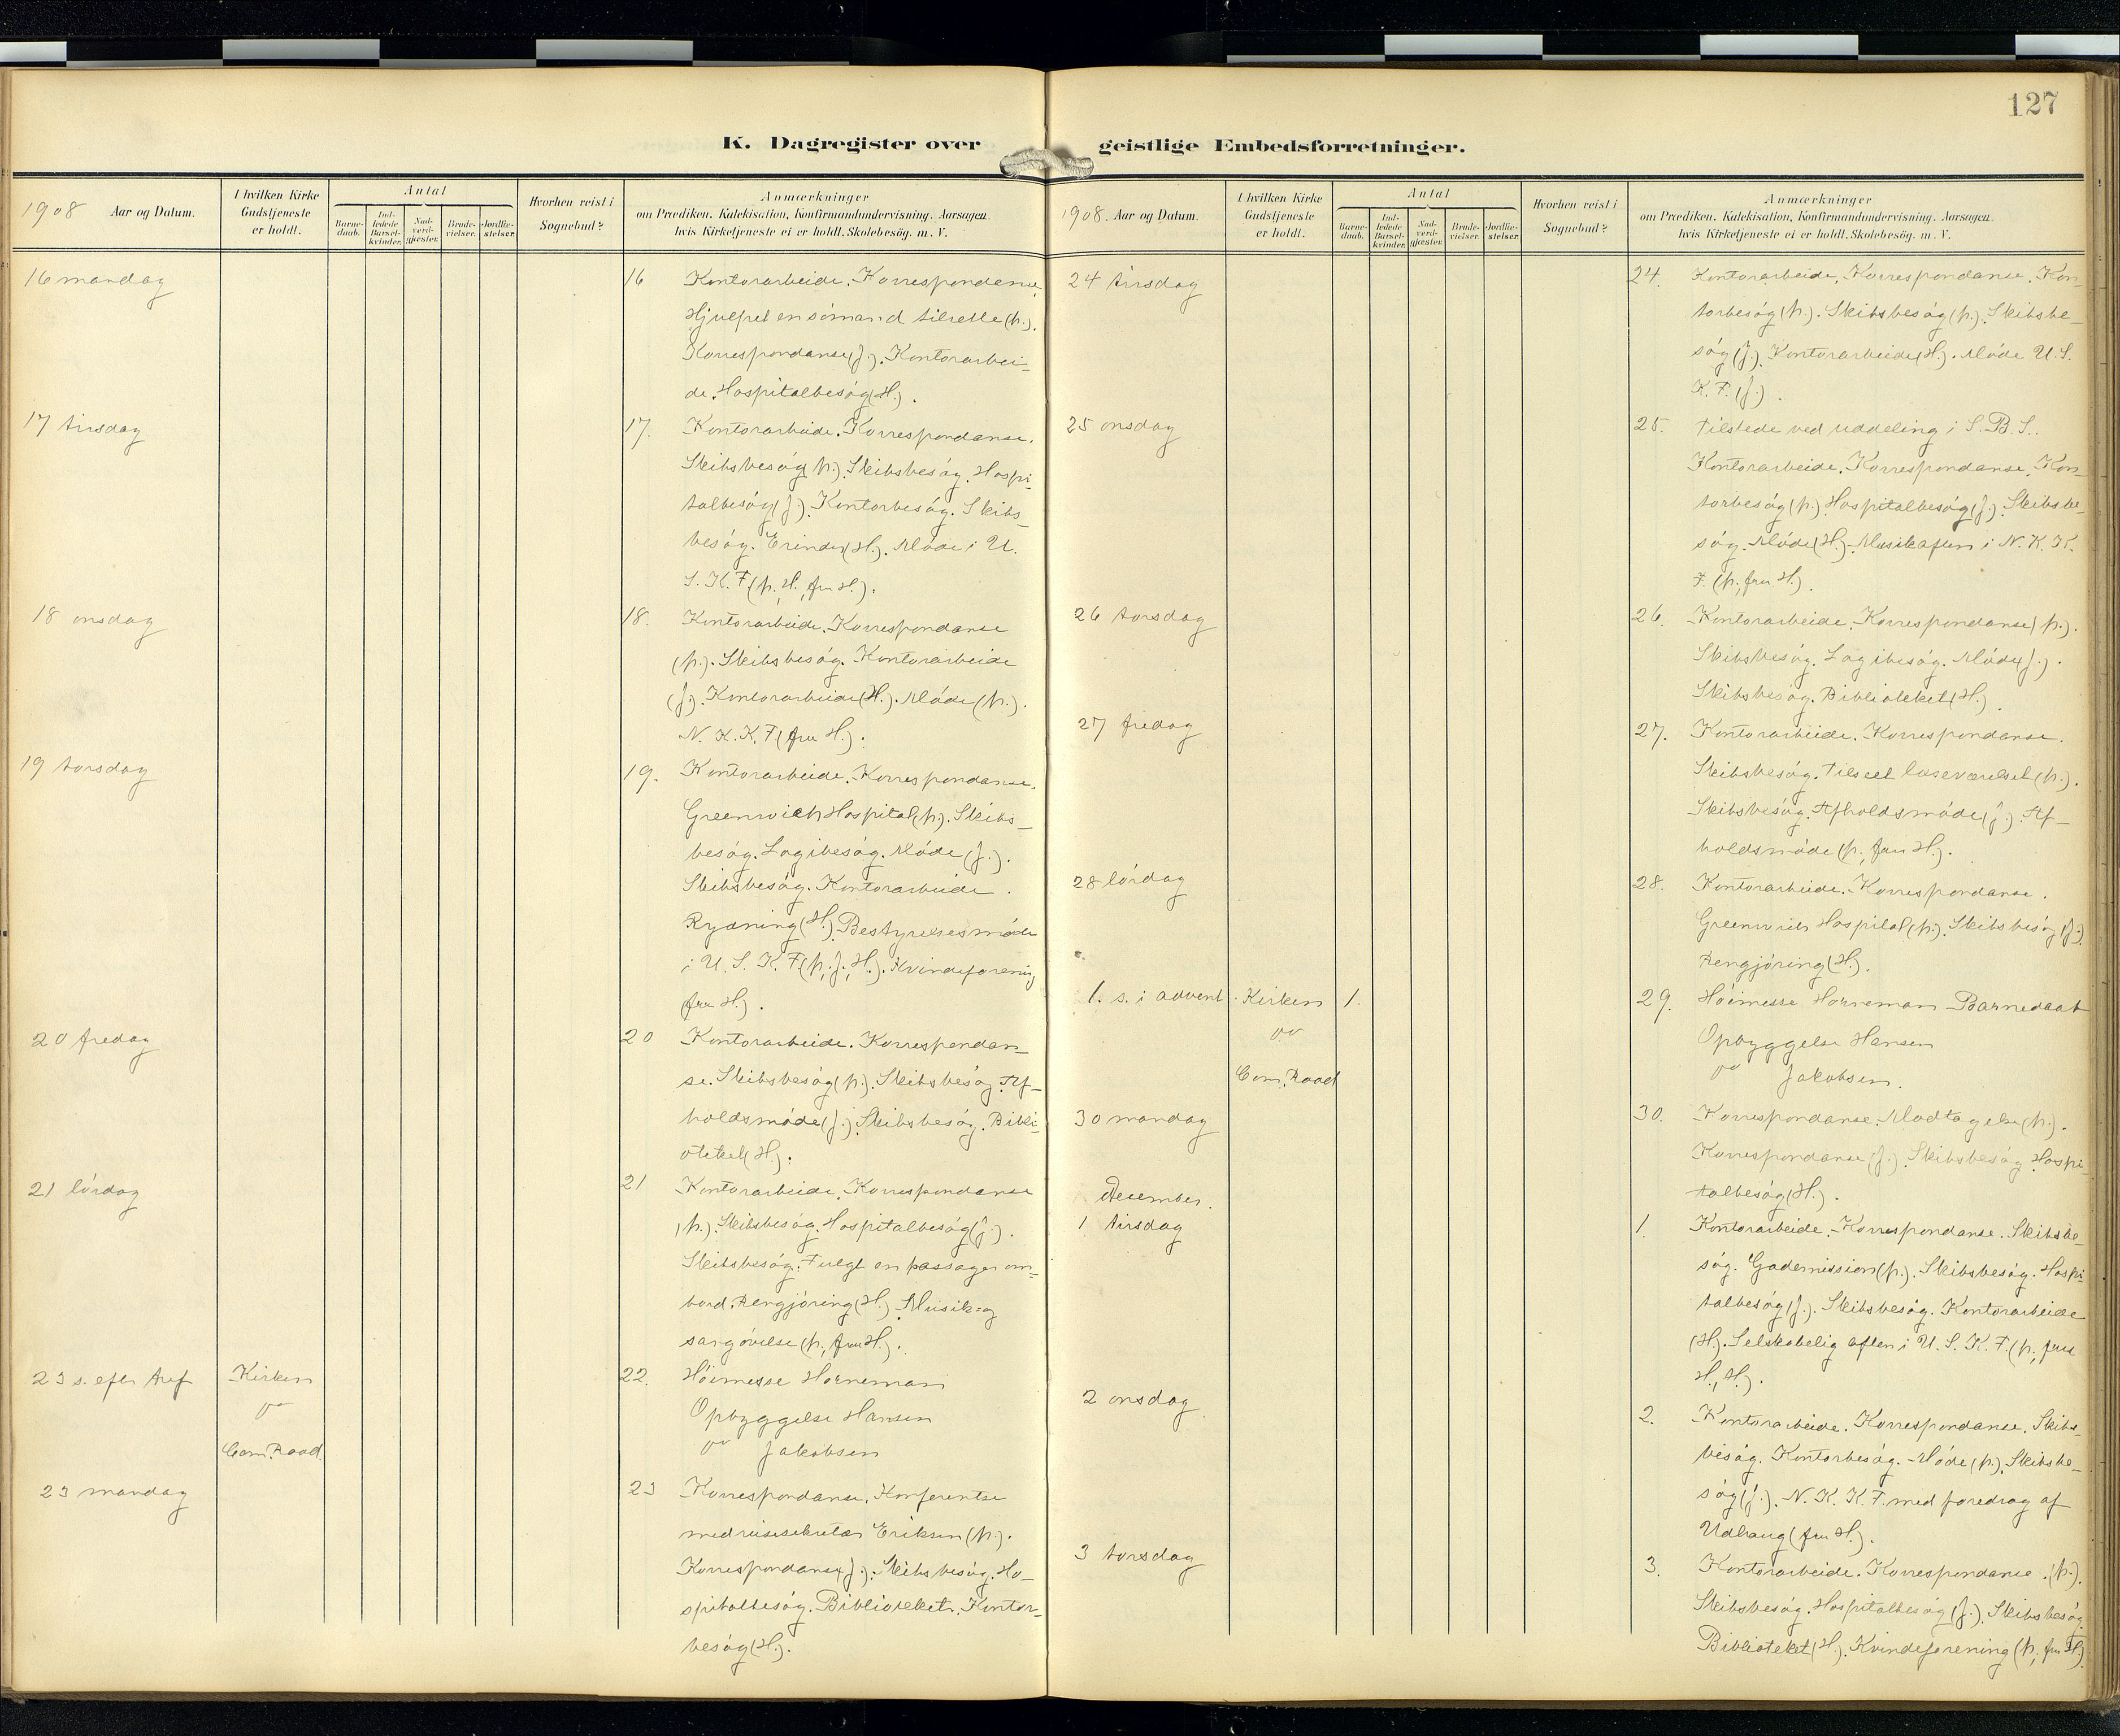 127
K. Dagregister over geistlige Embedsforretninger.
1908 Aar og Datum.
I hvilken Kirke Gudstjeneste er holdt.
Antal
Barne-daab.
Ind-ledede Barsel-kvinder.
Nad-verd-gjester.
Brude-vielser.
Jordfæ-stelser.
Hvorhen reist i Sognebud?
Anmærkninger
om Prædiken, Katekisation, Konfirmandundervisning, Aarsagen,
hvis Kirketjeneste ei er holdt, Skolebesøg. m. V.
16 mandag
16 Kontorarbeide. Korrespondanse,
Hjulpet en sømand tilrette (p.).
Korrespondanse (J.). Kontorarbei-
de. Hospitalbesøg (H.).
17 tirsdag
17. Kontorarbeide. Korrespondanse.
Skibsbesøg (p.). Skibsbesøg. Hospi-
talbesøg (J.). Kontorbesøg. Skibs-
besøg. Erinder (H.). Møde i U.
S. K. F. (p., H., fru H.).
18 onsdag
18. Kontorarbeide. Korrespondanse
(p.). Skibsbesøg. Kontorarbeide
(J.). Kontorarbeide (H.). Møde (p.).
N. K. K. F. (fru H.).
19 torsdag
19. Kontorarbeide. Korrespondanse.
Greenwich Hospital (p.). Skibs-
besøg. Logibesøg. Møde (J.).
Skibsbesøg. Kontorarbeide.
Rydning (H.). Bestyrelsesmøde
i U. S. K. F. (p., J., H.). Kvindeforening
(fru H.).
20 fredag
20 Kontorarbeide. Korrespondan-
se. Skibsbesøg (p.). Skibsbesøg. Af-
holdsmøde (J.). Skibsbesøg. Bibli-
oteket (H.).
21 lördag
21 Kontorarbeide. Korrespondanse
(p.). Skibsbesøg. Hospitalbesøg (J.).
Skibsbesøg. Fulgt en passager om-
bord. Rengjöring (H.). Musik= og
sangövelse (p., fru H.).
23 s. efter tref
Kirken
oo
Com. Road.
22. Höimesse Horneman
Opbyggelse Hansen
oo Jakobsen
23 mandag
23 Korrespondanse. Konferentse
med reisesekretær Eriksen (p.).
Korrespondanse (J.). Skibsbesøg. Ho-
spitalbesøg. Biblioteket. Kontor-
besøg (H.).
1908. Aar og Datum.
I hvilken Kirke Gudstjeneste er holdt.
Antal
Barne-daab.
Ind-ledede Barsel-kvinder.
Nad-verd-gjester.
Brude-vielser.
Jordfæ-stelser.
Hvorhen reist i Sognebud?
Anmærkninger
om Prædiken, Katekisation, Konfirmandundervisning, Aarsagen,
hvis Kirketjeneste ei er holdt, Skolebesøg. m. V.
24 tirsdag
24. Kontorarbeide. Korrespondanse. Kon-
torbesøg (p.). Skibsbesøg (p.). Skibsbe-
søg (J.). Kontorarbeide (H.). Møde U. S.
K. F. (J.).
25 onsdag
25. Tilstede ved uddeling i S. B. S.
Kontorarbeide. Korrespondanse. Kon-
torbesøg (p.). Hospitalbesøg (J.). Skibsbe-
søg. Møde (H.). Musikaften i N. K. K.
F. (p., fru H.).
26 torsdag
26. Kontorarbeide. Korrespondanse (p.).
Skibsbesøg. Logibesøg. Møde (J.).
Skibsbesøg. Biblioteket (H.).
27 fredag
27. Kontorarbeide. Korrespondanse.
Skibsbesøg. Tilseet læseværelset (p.).
Skibsbesøg. Afholdsmøde (J.). Af-
holdsmøde (p., fru H.).
28 lördag
28. Kontorarbeide. Korrespondanse.
Greenwich Hospital (p.). Skibsbesøg (J.).
Rengjöring (H.).
1. s. i advent
Kirken 1.
oo
Com. Road
29. Höimesse Horneman Barnedaab
Opbyggelse Hansen
oo Jakobsen.
30 mandag
30. Korrespondanse. Modtagelse (p.).
Korrespondanse (J.). Skibsbesøg Hospi-
talbesøg (H.).
December.
1 tirsdag
1. Kontorarbeide. Korrespondanse. Skibsbe-
søg. Gademission (p.). Skibsbesøg. Hospi-
talbesøg (J.). Skibsbesøg. Kontorarbeide
(H.). Selskabelig aften i U. S. K. F. (p., fru
H., H.).
2 onsdag
2. Kontorarbeide. Korrespondanse. Skibs-
besøg. Kontorbesøg. Møde (p.). Skibsbe-
søg (J.). N. K. K. F. med foredrag af
Udbaug (fru H.).
3 torsdag
3. Kontorarbeide. Korrespondanse. (p.).
Skibsbesøg. Hospitalbesøg (J.). Skibsbesøg.
Biblioteket (H.). Kvindeforening (p., fru H.).